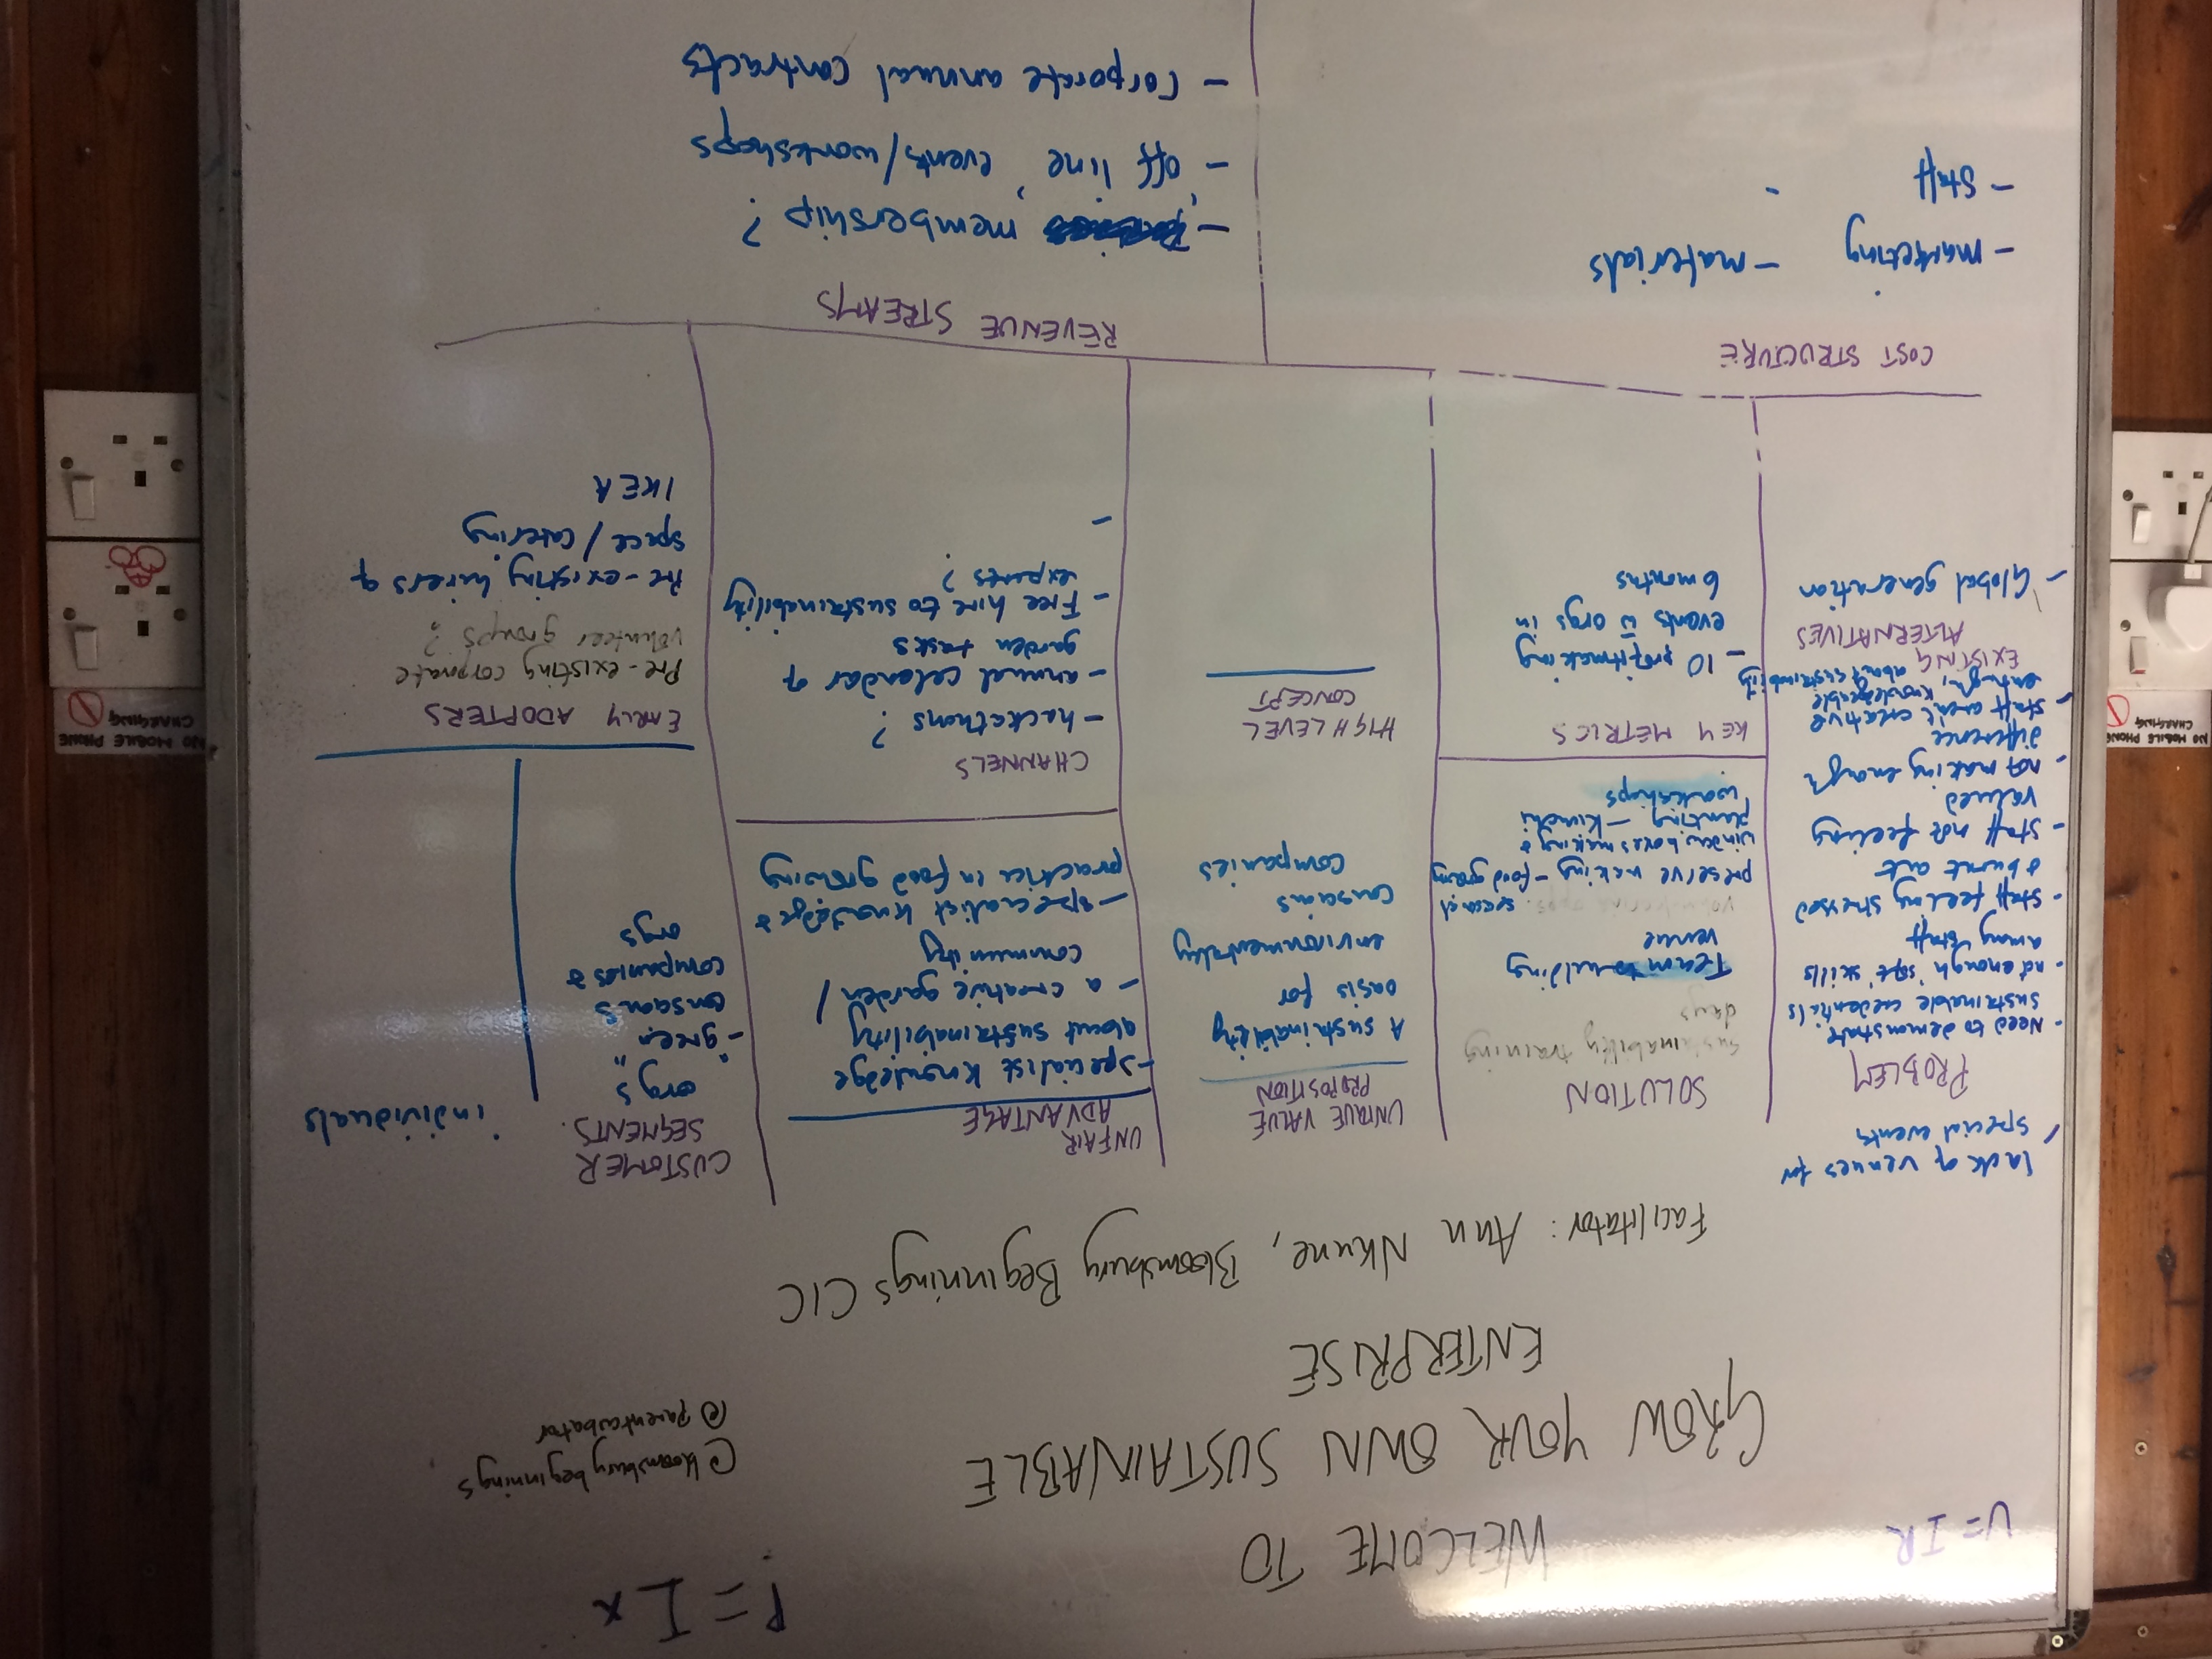 U=IR
P = I x
WELCOME TO
GROW YOUR OWN SUSTAINABLE
ENTERPRISE
@bloomsburybeginnings
@parentcubator
Facilitator: Ann Nkune, Bloomsbury Beginnings CIC
lack of venues for
special events
PROBLEM
- Need to demonstrate
sustainable credentials
- not enough 'soft' skills
among staff
- staff feeling stressed
& burnt out
- staff not feeling
valued
- not making enough
difference
- staff aren't creative
enough, knowledgeable
about sustainability
EXISTING
ALTERNATIVES
- Global generation
SOLUTION
sustainability training
days
Team building
venue
volunteering opps. seasonal
preserve making - food growing
window boxes making &
planting - Kimchi
workshops
KEY METRICS
- 10 profitmaking
events w̄ orgs in
6 months
UNIQUE VALUE
PROPOSITION
A sustainability
oasis for
environmentally
conscious
companies
HIGH LEVEL
CONCEPT
UNFAIR
ADVANTAGE
- specialist knowledge
about sustainability
- a creative garden /
community
- specialist knowledge &
practice in food growing
CHANNELS
- hackathons ?
- annual calendar of
garden tasks
- Free hire to sustainability
experts ?
-
CUSTOMER
SEGMENTS.
orgs
- "green"
conscious
companies &
orgs
individuals
EARLY ADOPTERS
Pre-existing corporate
volunteer groups ?
Pre-existing hirers of
space / catering
IKEA
COST STRUCTURE
- marketing
- staff
- materials
-
REVENUE STREAMS
- membership ?
- 'off line' events/workshops
- Corporate annual contracts
NO MOBILE PHONE
CHARGING
NO MOBILE PHONE
CHARGING